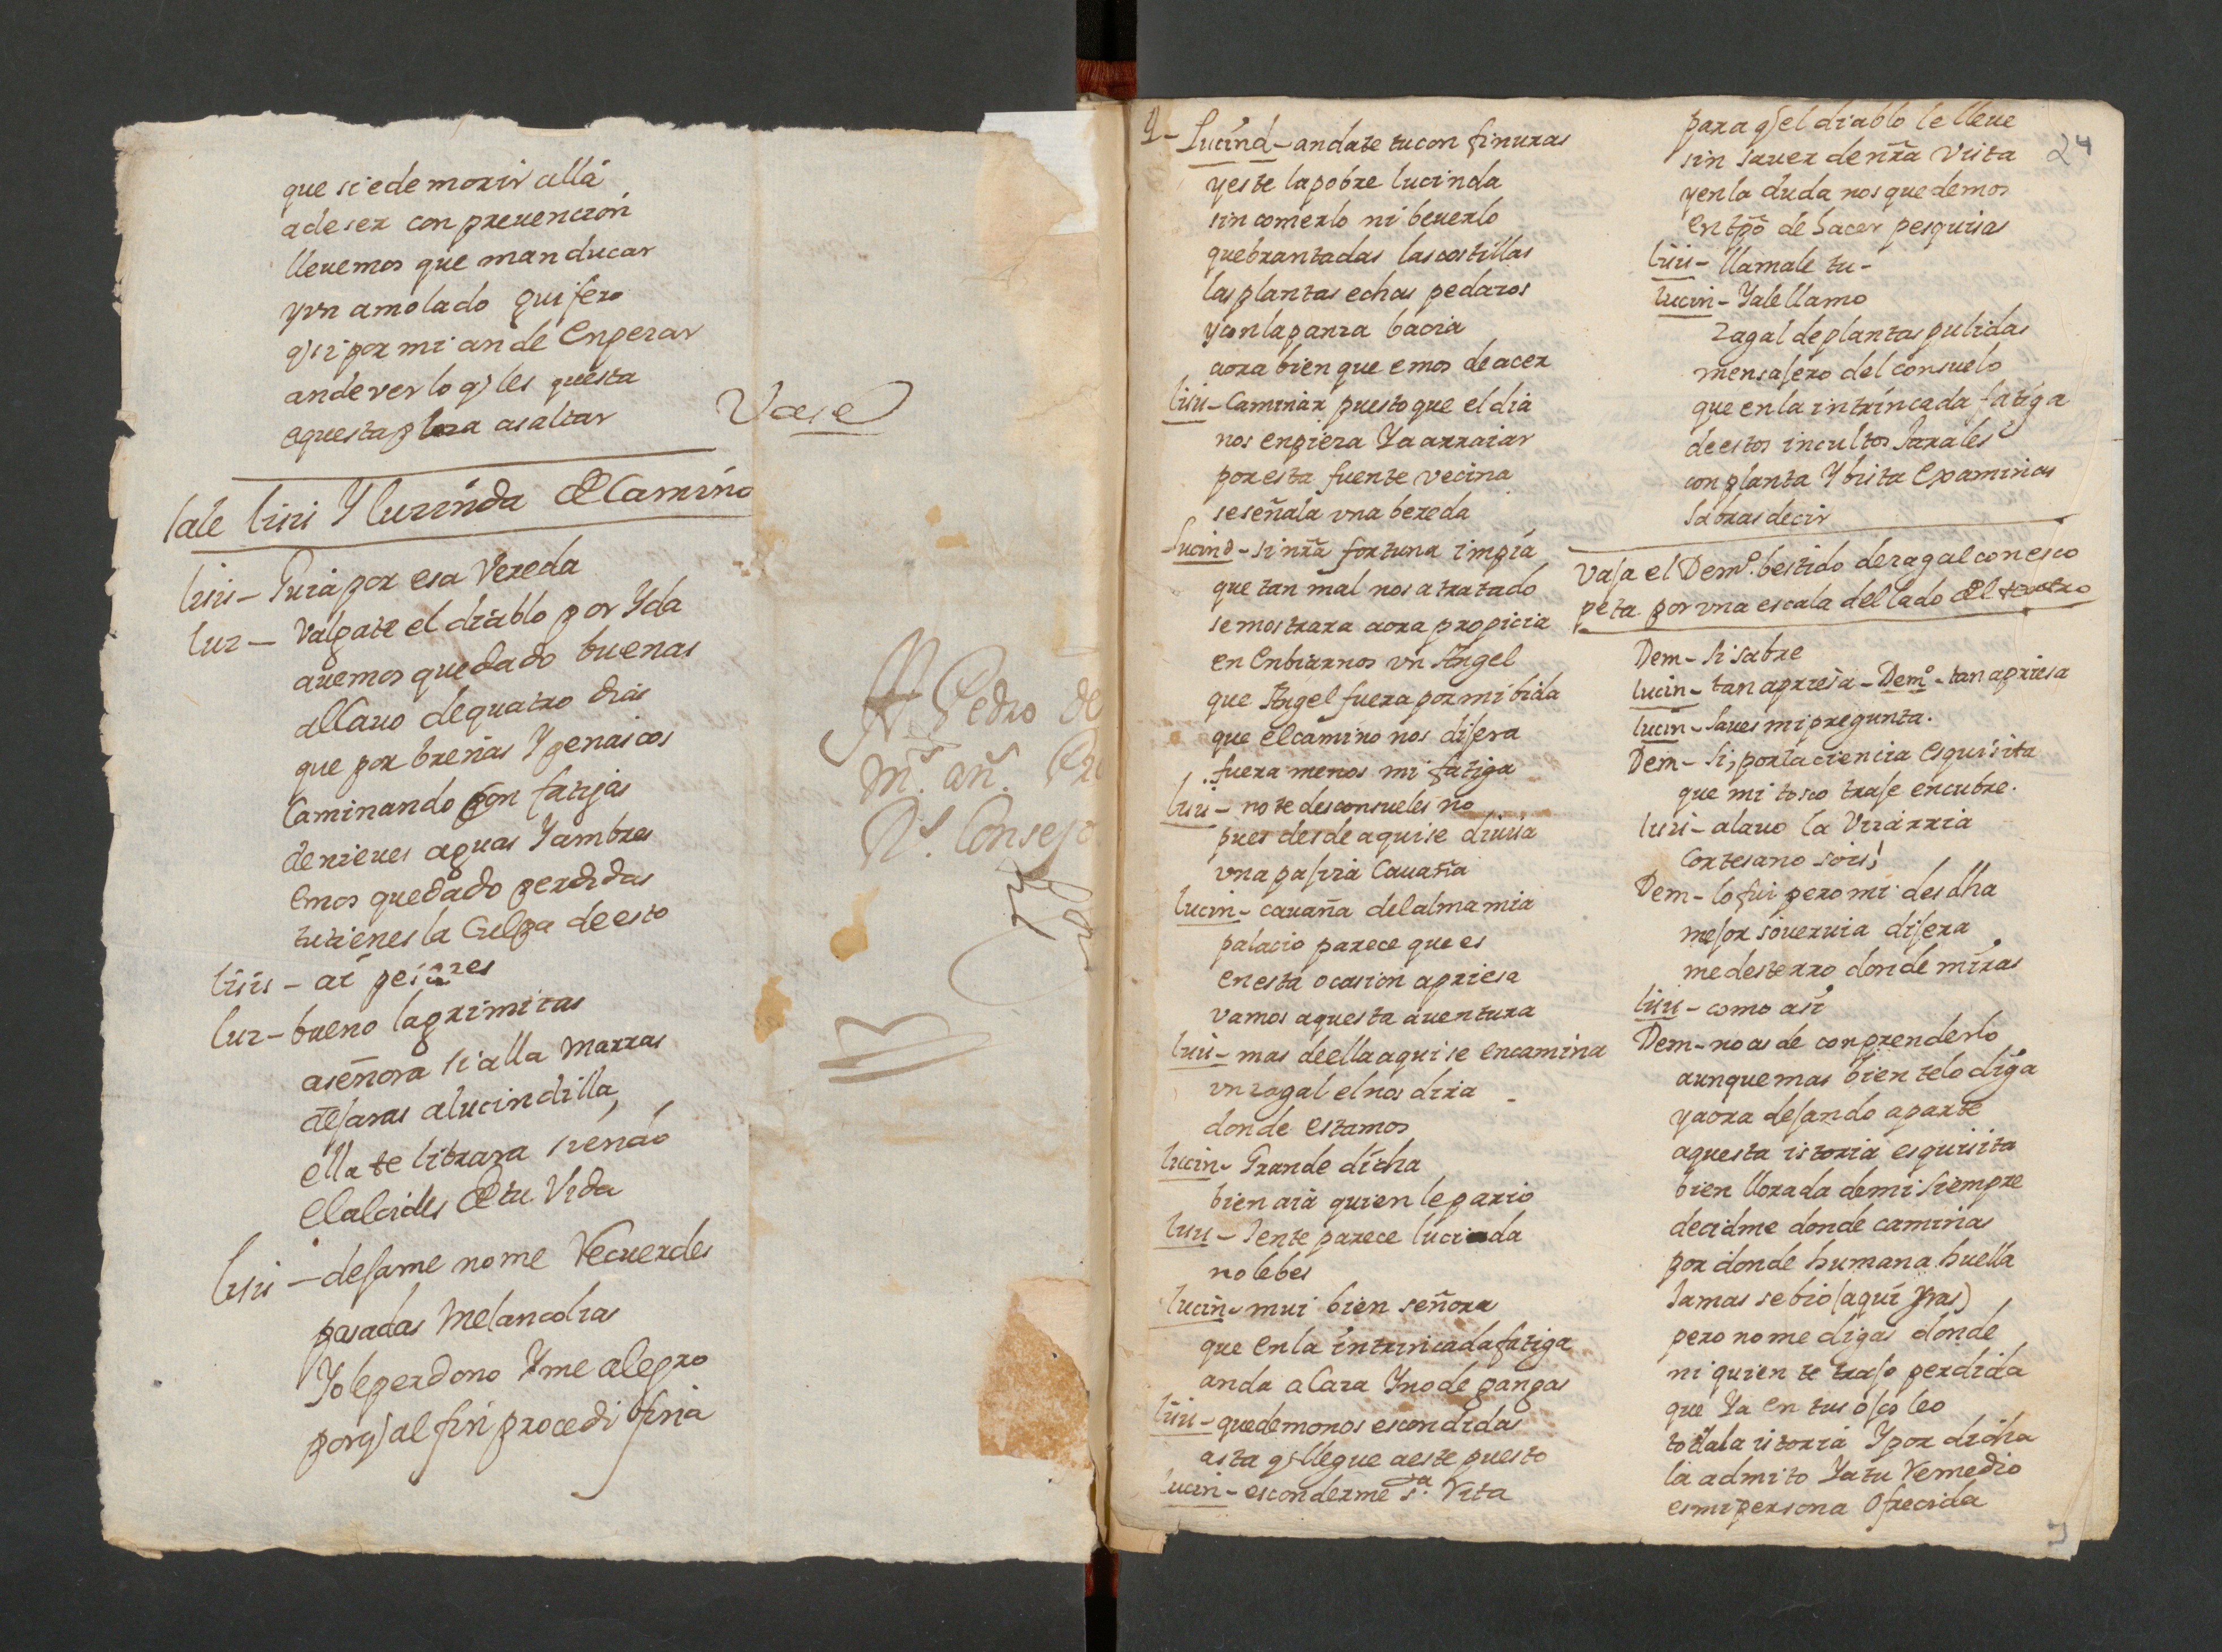 que si e de morir alla
a de ser con preuencion
lleuemos que manducar
y vn amolado quifero
q) si por mi an de Enpezar
an de ver lo q) les questa
aquesta plaza asaltar
Vase
Sale lisis Y luzinda de Camino
lisis - Guia por esa Vereda
luz - Valgate el diablo por Yda
auemos quedado buenas
al Cauo de quatro dias
que por breñas Y penascos
Caminando con fatigas
de nieues aguas Y ambres
emos quedado perdidas
tu tienes la Culpa de esto
lisis - ai pesares
luz - bueno lagrimitas
a señora si alla marras
desaras a lucindilla
ella te librara siendo
el alcides de tu Vida
lisis - desame no me Recuerdes
pasadas melancolias
Yo le perdono Y me alegro
porq) al fin procedi fina
Pedro de
mˢ. añ.
Rˡ. Consejo
Y - Lucind - andate tu con finuras
y este la pobre lucinda
sin comerlo ni beuerlo
quebrantadas las costillas
las plantas echas pedazos
y con la panza bacia
aora bien que emos de acer
lisis - Caminar puesto que el dia
nos enpieza Ya arraiar
por esta fuente vecina
se señala vna bereda
lucind - si nr̃a fortuna impia
que tan mal nos a tratado
se mostrara aora propicia
en enbiarnos vn Angel
que Angel fuera por mi bida
que el camino nos disera
fuera menos mi fatiga
lisis - no te desconsueles no
pues desde aqui se diuisa
vna pasiza Cauaña
lucin - cauaña del alma mia
palacio parece que es
en esta ocasion apriesa
vamos aquesta auentura
lisis - mas de ella aqui se encamina
vn zagal el nos dira
donde estamos
lucin - Grande dicha
bien aia quien le pario
lisis - Jente parece lucinda
no le bes
lucin - mui bien señora
que en la intrincada fatiga
anda a Caza Y no de gangas
lisis - quedemonos escondidas
asta q) llegue a este puesto
lucin - esconderme sᵃ. Vita
24
para q) el diablo le lleue
sin sauer de nr̃a Vista
y en la duda nos quedemos
en tpõ de hacer pesquisas
lisis - llamale tu -
lucin - Ya le llamo
zagal de plantas pulidas
mensajero del consuelo
que en la intrincada fatiga
de estos incultos Jarales
con planta Y bista Examinas
sabras decir
Vasa el Demº. bestido de zagal con esco
peta por vna escala del lado del teatro
Dem - si sabre
lucin - tan apriesa - Demº - tan apriesa
lucin - saues mi pregunta.
Dem - si, por la ciencia esquisita
que mi tosco traje encubre.
lisis - alauo la Vizarria
Cortesano sois!
Dem - lo fui pero mi desdha
mesor souerbia disera
me desterro donde miras
lisis - como asi
Dem - no as de conprenderlo
aunque mas bien te lo diga
y aora desando aparte
aquesta istoria esquisita
bien llorada de mi siempre
decidme donde caminas
por donde humana huella
Jamas se bio (aqui yras)
pero no me digas donde
ni quien te trajo perdida
que Ya en tus ojos leo
toda la istoria Y por dicha
la admito Ya tu Remedio
es mi persona Ofrecida